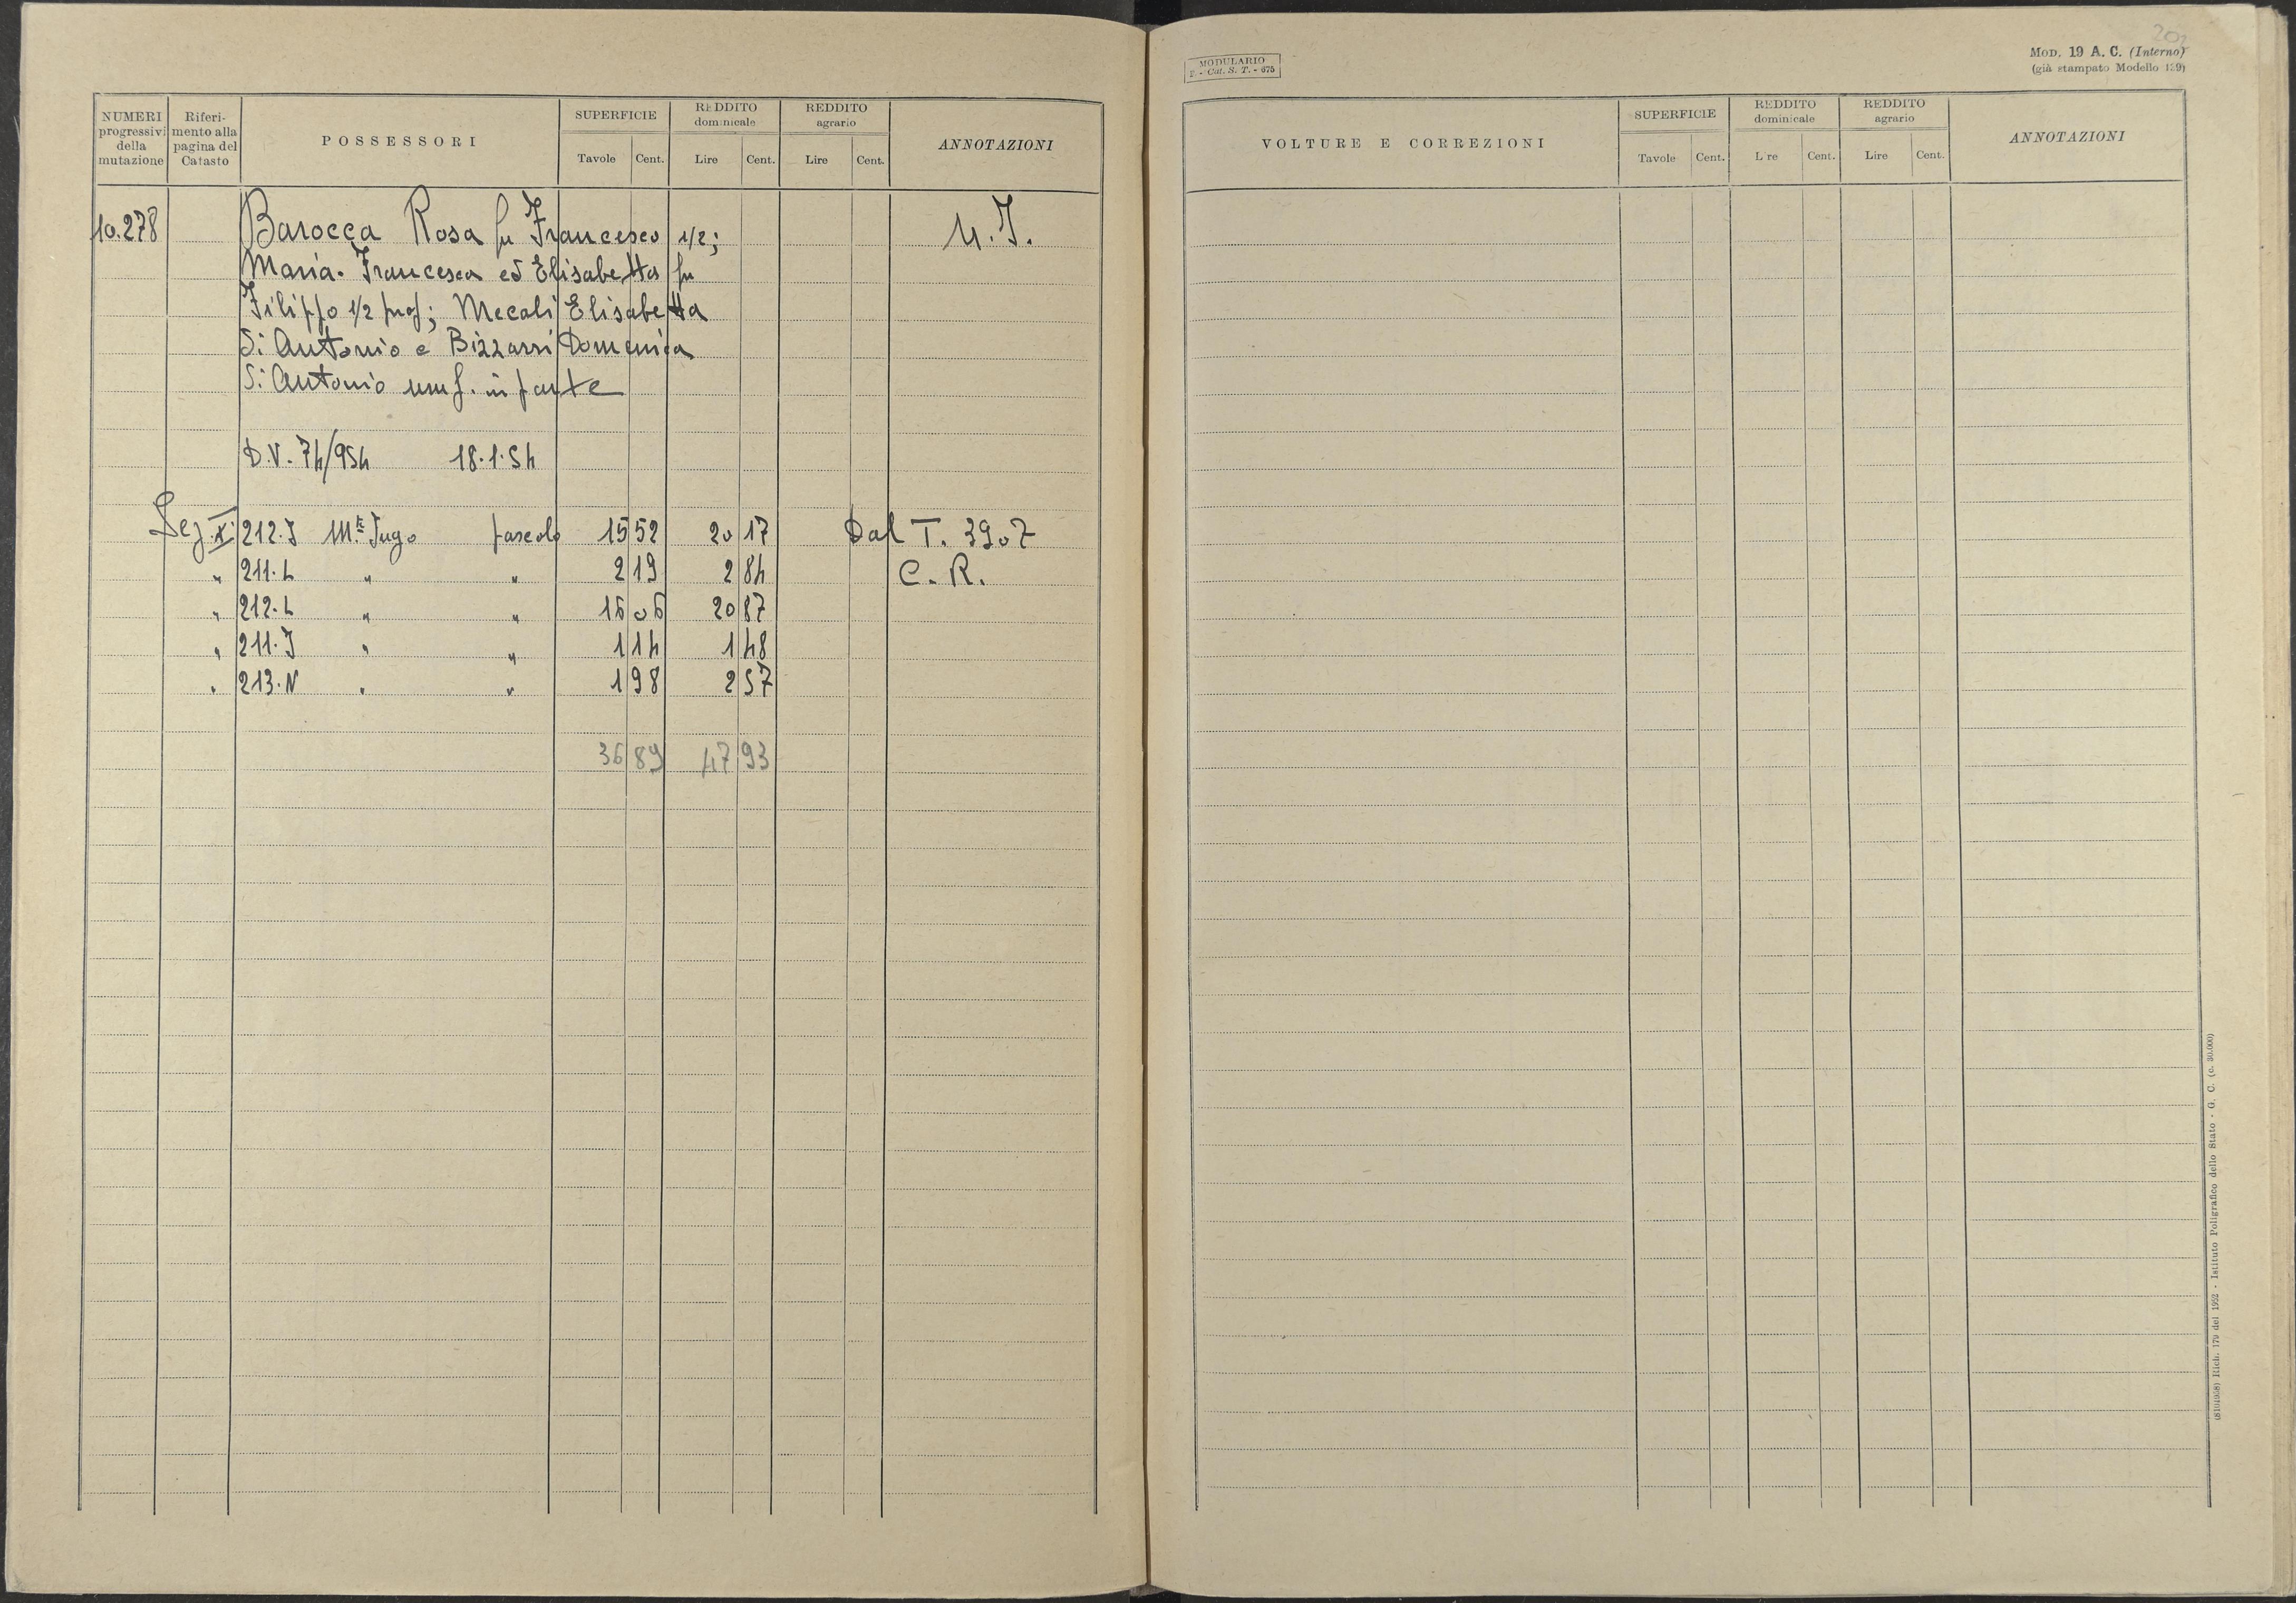 NUMERI progressivi della mutazione
Riferimento alla pagina del Catasto
POSSESSORI
SUPERFICIE
Tavole Cent.
REDDITO dominicale
Lire Cent.
REDDITO agrario
Lire Cent.
ANNOTAZIONI
10.278 Barocca Rosa fu Francesco 1/2; U.I.
Maria. Francesca ed Elisabetta fu
Filippo 1/2 prof; Mecali Elisabetta
di Antonio e Bizzarri Domenica
di Antonio usuf. in parte
D.V. 74/954 18.1.54
Sez. X 212.I M.te Iugo pascolo 15 52 20 17 Dal T. 3907
" 211.L " " 2 19 2 84 C.R.
" 212.L " " 16 06 20 87
" 211.I " " 1 14 1 48
" 213.N " " 1 98 2 57
36 89 47 93
MODULARIO
F. - Cat. S. T. - 675
MOD. 19 A. C. (Interno)
(già stampato Modello 139)
VOLTURE E CORREZIONI
SUPERFICIE
Tavole Cent.
REDDITO dominicale
L re Cent.
REDDITO agrario
Lire Cent.
ANNOTAZIONI
Rich. 179 del 1952 - Istituto Poligrafico dello Stato - G. C. (c. 30.000)